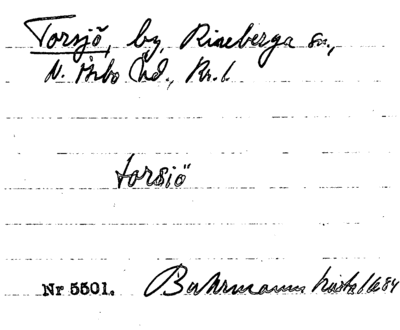 Torsjö, by, Riseberga sn.,
N. Åsbo hd., Kr. l.
torsiö
Nr 5501. Buhrmanns karta 1684